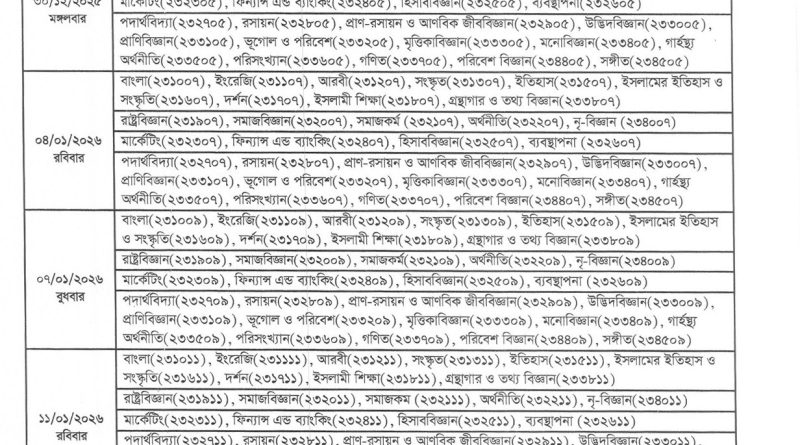 ৩০/১২/২০২৫
মঙ্গলবার
মার্কেটিং(২৩২৩০৫), ফিন্যান্স এন্ড ব্যাংকিং(২৩২৪০৫), হিসাববিজ্ঞান(২৩২৫০৫), ব্যবস্থাপনা(২৩২৬০৫)
পদার্থবিদ্যা(২৩২৭০৫), রসায়ন(২৩২৮০৫), প্রাণ-রসায়ন ও আণবিক জীববিজ্ঞান(২৩২৯০৫), উদ্ভিদবিজ্ঞান(২৩৩০০৫),
প্রাণিবিজ্ঞান(২৩৩১০৫), ভূগোল ও পরিবেশ(২৩৩২০৫), মৃত্তিকাবিজ্ঞান(২৩৩৩০৫), মনোবিজ্ঞান(২৩৩৪০৫), গার্হস্থ্য
অর্থনীতি(২৩৩৫০৫), পরিসংখ্যান(২৩৩৬০৫), গণিত(২৩৩৭০৫), পরিবেশ বিজ্ঞান(২৩৪৪০৫), সঙ্গীত(২৩৪৫০৫)
০৪/০১/২০২৬
রবিবার
বাংলা(২৩১০০৭), ইংরেজি(২৩১১০৭), আরবী(২৩১২০৭), সংস্কৃত(২৩১৩০৭), ইতিহাস(২৩১৫০৭), ইসলামের ইতিহাস ও
সংস্কৃতি(২৩১৬০৭), দর্শন(২৩১৭০৭), ইসলামী শিক্ষা(২৩১৮০৭), গ্রন্থাগার ও তথ্য বিজ্ঞান(২৩৩৮০৭)
রাষ্ট্রবিজ্ঞান(২৩১৯০৭), সমাজবিজ্ঞান(২৩২০০৭), সমাজকর্ম (২৩২১০৭), অর্থনীতি(২৩২২০৭), নৃ-বিজ্ঞান (২৩৪০০৭)
মার্কেটিং(২৩২৩০৭), ফিন্যান্স এন্ড ব্যাংকিং(২৩২৪০৭), হিসাববিজ্ঞান(২৩২৫০৭), ব্যবস্থাপনা (২৩২৬০৭)
পদার্থবিদ্যা(২৩২৭০৭), রসায়ন(২৩২৮০৭), প্রাণ-রসায়ন ও আণবিক জীববিজ্ঞান(২৩২৯০৭), উদ্ভিদবিজ্ঞান(২৩৩০০৭),
প্রাণিবিজ্ঞান(২৩৩১০৭), ভূগোল ও পরিবেশ(২৩৩২০৭), মৃত্তিকাবিজ্ঞান(২৩৩৩০৭), মনোবিজ্ঞান(২৩৩৪০৭), গার্হস্থ্য
অর্থনীতি(২৩৩৫০৭), পরিসংখ্যান(২৩৩৬০৭), গণিত(২৩৩৭০৭), পরিবেশ বিজ্ঞান(২৩৪৪০৭), সঙ্গীত(২৩৪৫০৭)
০৭/০১/২০২৬
বুধবার
বাংলা(২৩১০০৯), ইংরেজি(২৩১১০৯), আরবী(২৩১২০৯), সংস্কৃত(২৩১৩০৯), ইতিহাস(২৩১৫০৯), ইসলামের ইতিহাস
ও সংস্কৃতি(২৩১৬০৯), দর্শন(২৩১৭০৯), ইসলামী শিক্ষা(২৩১৮০৯), গ্রন্থাগার ও তথ্য বিজ্ঞান(২৩৩৮০৯)
রাষ্ট্রবিজ্ঞান(২৩১৯০৯), সমাজবিজ্ঞান(২৩২০০৯), সমাজকর্ম(২৩২১০৯), অর্থনীতি(২৩২২০৯), নৃ-বিজ্ঞান(২৩৪০০৯)
মার্কেটিং(২৩২৩০৯), ফিন্যান্স এন্ড ব্যাংকিং(২৩২৪০৯), হিসাববিজ্ঞান(২৩২৫০৯), ব্যবস্থাপনা(২৩২৬০৯)
পদার্থবিদ্যা(২৩২৭০৯), রসায়ন(২৩২৮০৯), প্রাণ-রসায়ন ও আণবিক জীববিজ্ঞান(২৩২৯০৯), উদ্ভিদবিজ্ঞান(২৩৩০০৯),
প্রাণিবিজ্ঞান(২৩৩১০৯), ভূগোল ও পরিবেশ(২৩৩২০৯), মৃত্তিকাবিজ্ঞান(২৩৩৩০৯), মনোবিজ্ঞান(২৩৩৪০৯), গার্হস্থ্য
অর্থনীতি(২৩৩৫০৯), পরিসংখ্যান(২৩৩৬০৯), গণিত(২৩৩৭০৯), পরিবেশ বিজ্ঞান(২৩৪৪০৯), সঙ্গীত(২৩৪৫০৯)
১১/০১/২০২৬
রবিবার
বাংলা(২৩১০১১), ইংরেজি(২৩১১১১), আরবী(২৩১২১১), সংস্কৃত(২৩১৩১১), ইতিহাস(২৩১৫১১), ইসলামের ইতিহাস ও
সংস্কৃতি(২৩১৬১১), দর্শন(২৩১৭১১), ইসলামী শিক্ষা(২৩১৮১১), গ্রন্থাগার ও তথ্য বিজ্ঞান(২৩৩৮১১)
রাষ্ট্রবিজ্ঞান(২৩১৯১১), সমাজবিজ্ঞান(২৩২০১১), সমাজকর্ম (২৩২১১১), অর্থনীতি(২৩২২১১), নৃ-বিজ্ঞান(২৩৪০১১)
মার্কেটিং(২৩২৩১১), ফিন্যান্স এন্ড ব্যাংকিং(২৩২৪১১), হিসাববিজ্ঞান(২৩২৫১১), ব্যবস্থাপনা(২৩২৬১১)
পদার্থবিদ্যা(২৩২৭১১), রসায়ন(২৩২৮১১), প্রাণ-রসায়ন ও আণবিক জীববিজ্ঞান(২৩২৯১১), উদ্ভিদবিজ্ঞান(২৩৩০১১),